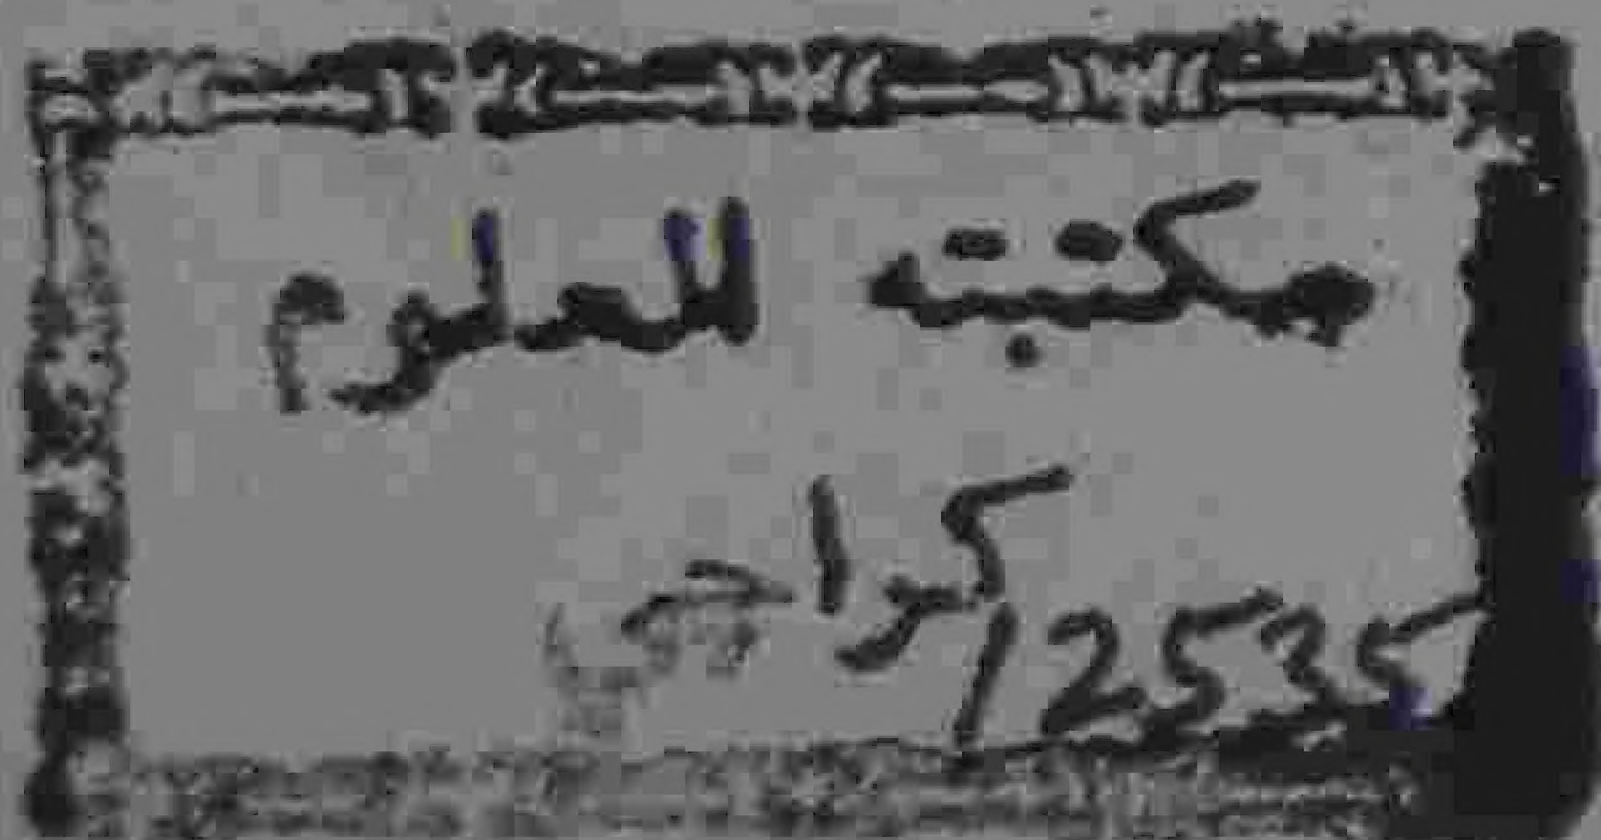 مکتبۃ العلوم
کراچی
12535